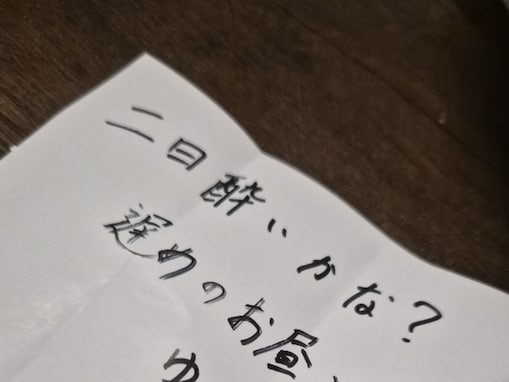 二日酔いかな?
遅めのお昼
ゆ